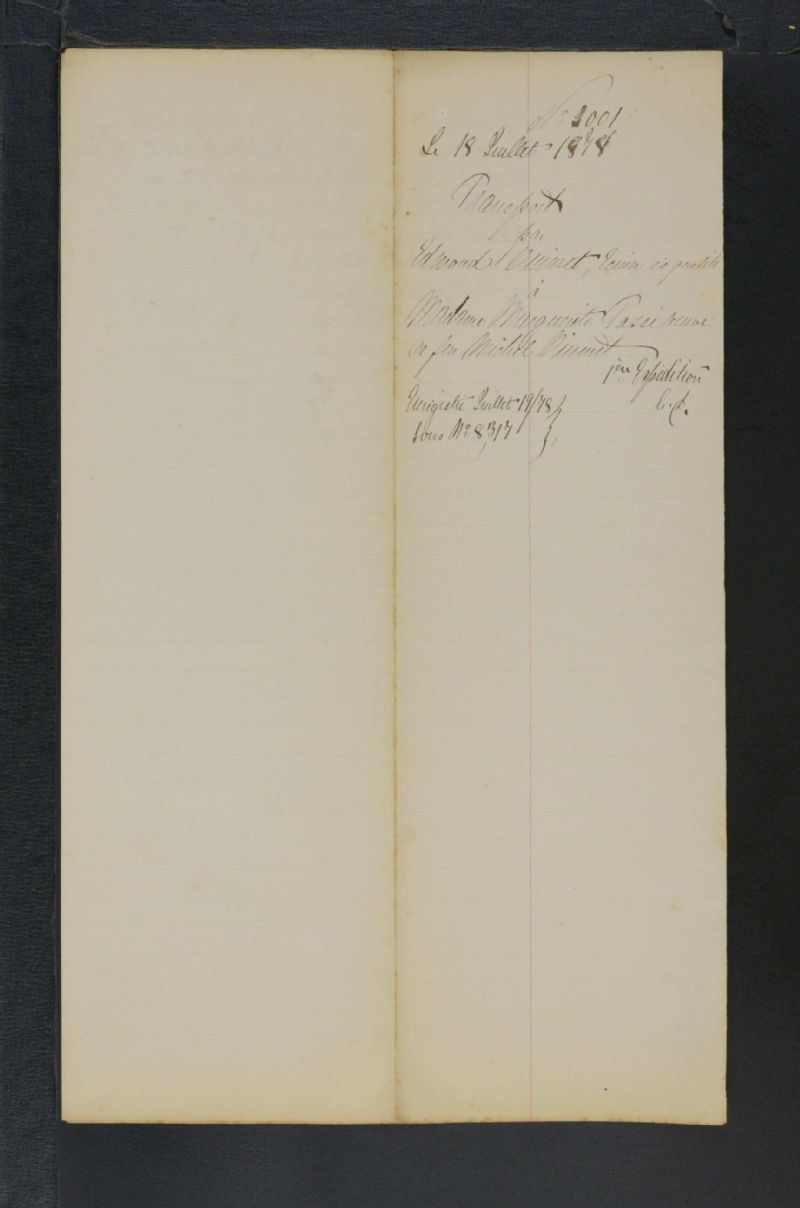 No 2001
Le 18 Juillet 1878
Transport
par
Edmond Ouimet, Ecuier, ès qualité
à
Madame Marguerite veuve
de feu Michel Ouimet
1ère Expédition
Enregistré Juillet 19/78
Sous No 8317